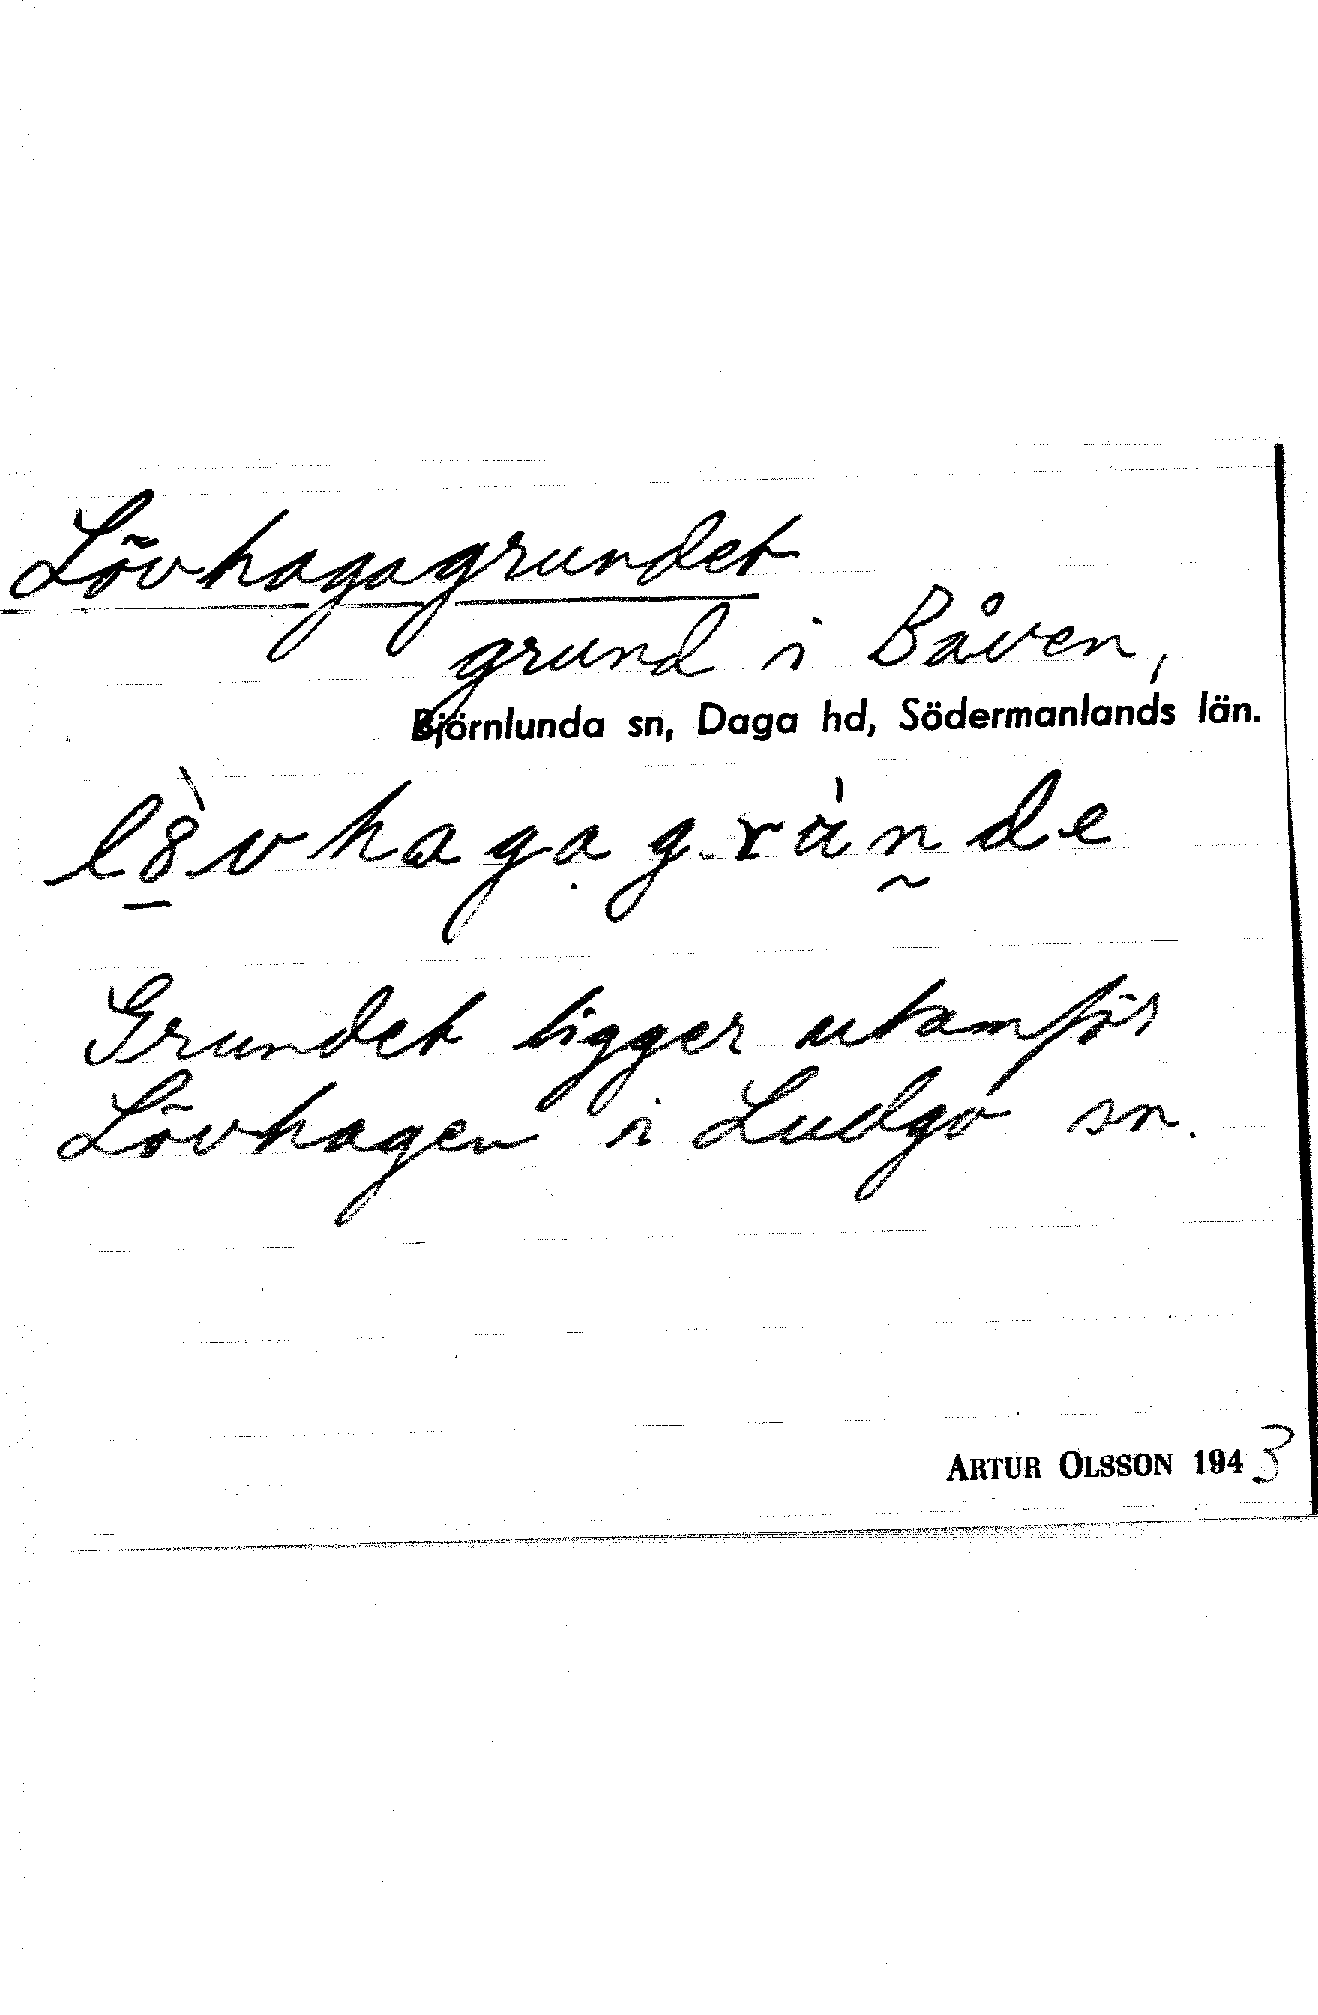 Lövhagagrundet
grund i Båven,
Björnlunda sn, Daga hd, Södermanlands län.
l8̠̀vhagagrùn̰de
Grundet ligger utanför
Lövhagen i Ludgo sn.
ARTUR OLSSON 1943